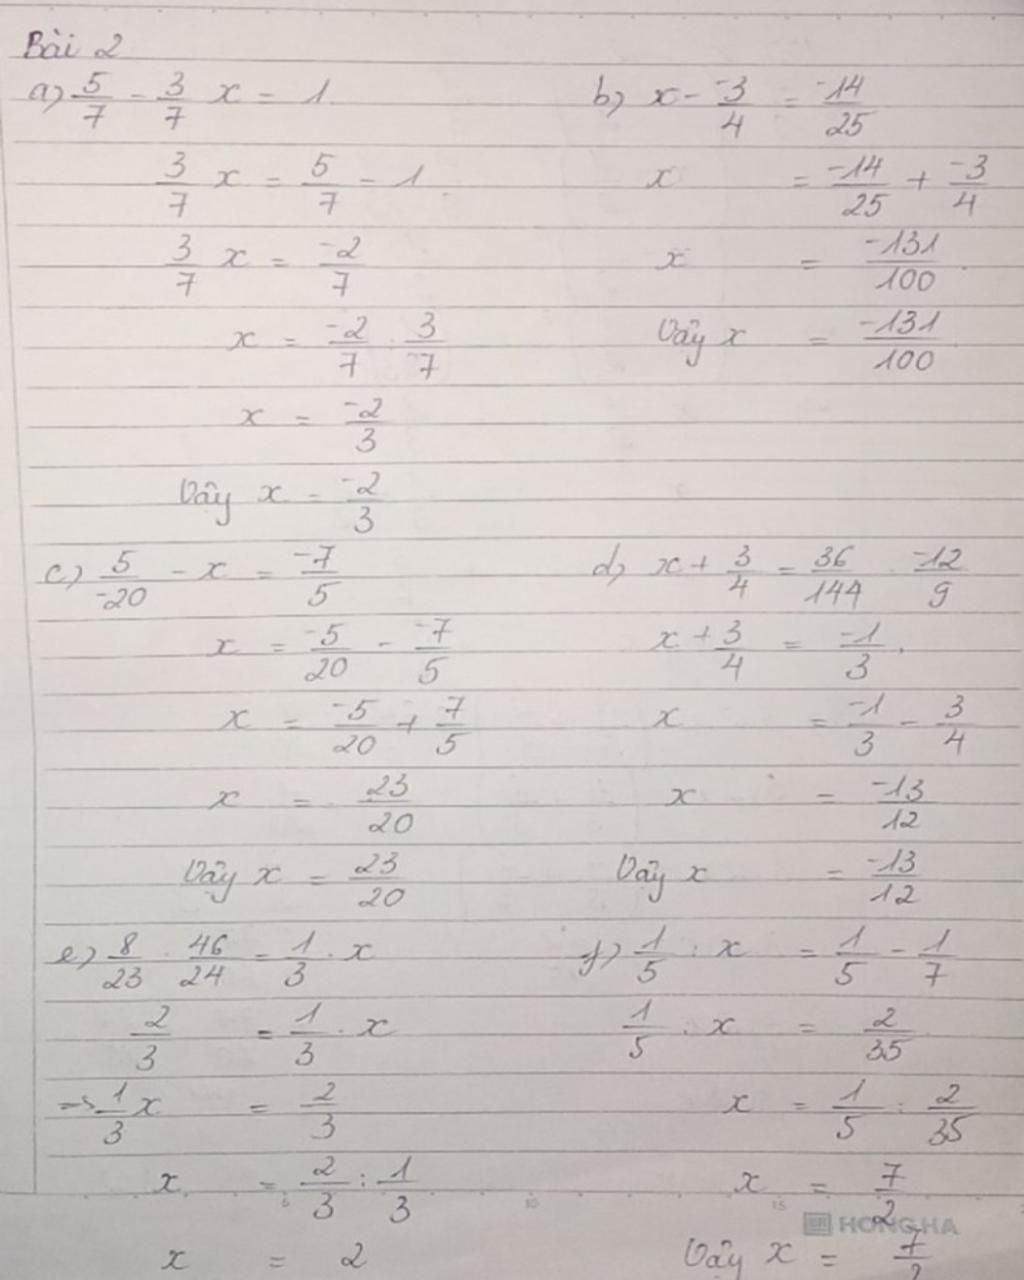 Bài 2
a) 5/7 - 3/7 x = 1
3/7 x = 5/7 - 1
3/7 x = -2/7
x = -2/7 : 3/7
x = -2/3
Vậy x = -2/3
b) x - -3/4 = -14/25
x = -14/25 + -3/4
x = -131/100
Vậy x = -131/100
c) 5/-20 - x = -7/5
x = -5/20 - -7/5
x = -5/20 + 7/5
x = 23/20
Vậy x = 23/20
d) x + 3/4 = 36/144 . -12/9
x + 3/4 = -1/3
x = -1/3 - 3/4
x = -13/12
Vậy x = -13/12
e) 8/23 . 46/24 = 1/3 . x
2/3 = 1/3 . x
=> 1/3 x = 2/3
x = 2/3 : 1/3
x = 2
f) 1/5 : x = 1/5 - 1/7
1/5 : x = 2/35
x = 1/5 : 2/35
x = 7/2
Vậy x = 7/2
5 10 15
HONG HA